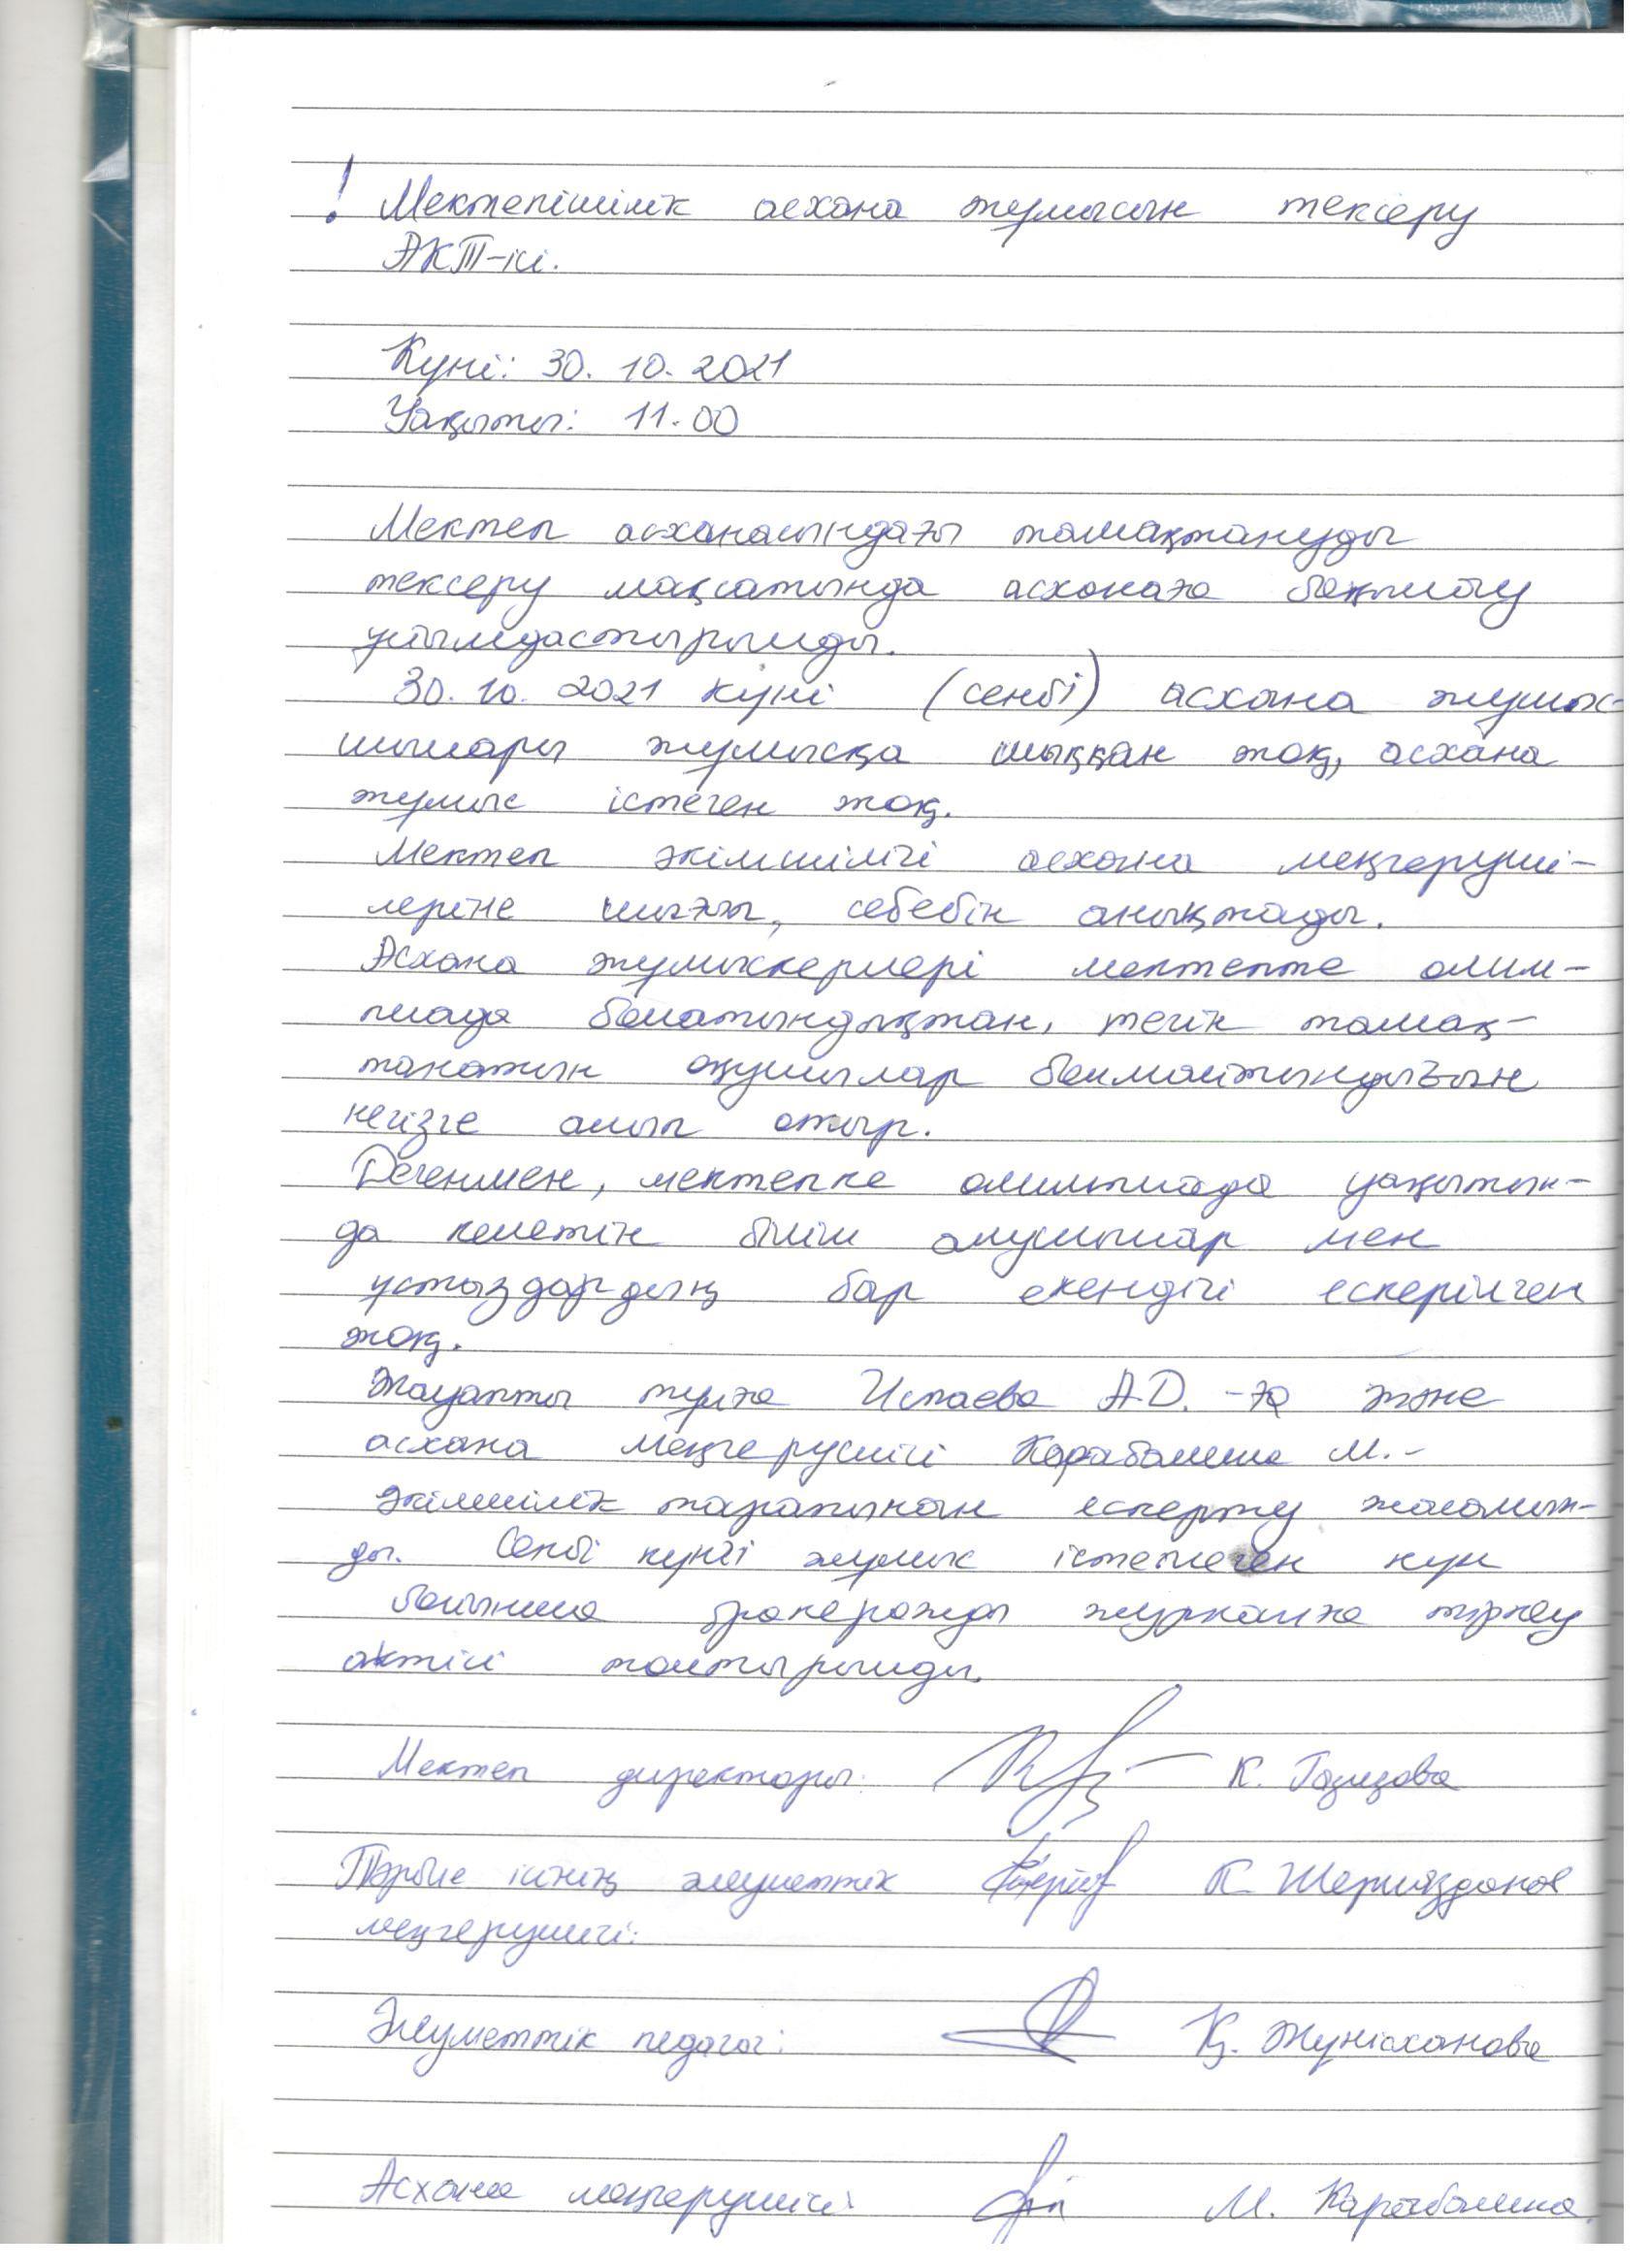 ! Мектепішілік асхана жұмысын тексеру
АКТ-ісі.
Күні: 30. 10. 2021
Уақыты: 11.00
Мектеп асханасындағы тамақтануды
тексеру мақсатында асханаға бақылау
ұйымдастырылды.
30. 10. 2021 күні (сенбі) асхана жұмыс-
шылары жұмысқа шыққан жоқ, асхана
жұмыс істеген жоқ.
Мектеп әкімшілігі асхана меңгеруші-
леріне шығып, себебін анықтады.
Асхана жұмыскерлері мектепте олим-
пиада болатындықтан, тегін тамақ-
танатын оқушылар болмайтындығын
негізге алып отыр.
Дегенмен, мектепке олимпиада уақытын-
да келетін білім алушылар мен
ұстаздардың бар екендігі ескерілген
жоқ.
Жауапты тұлға Испаева А.D. -ға және
асхана меңгерушісі Карабалина М.-
әкімшілік тарапынан ескерту жасалын-
ды. Сенбі күнгі жұмыс істемеген күн
бойынша бракеражды журналға тіркеу
актісі толтырылды.
Мектеп директоры: К. Газизова
Тәрбие ісінің әлеуметтік К. Шериязданов
меңгерушісі:
Әлеуметтік педагог: Қ. Жүнісханова
Асхана меңгерушісі: М. Карабалина.